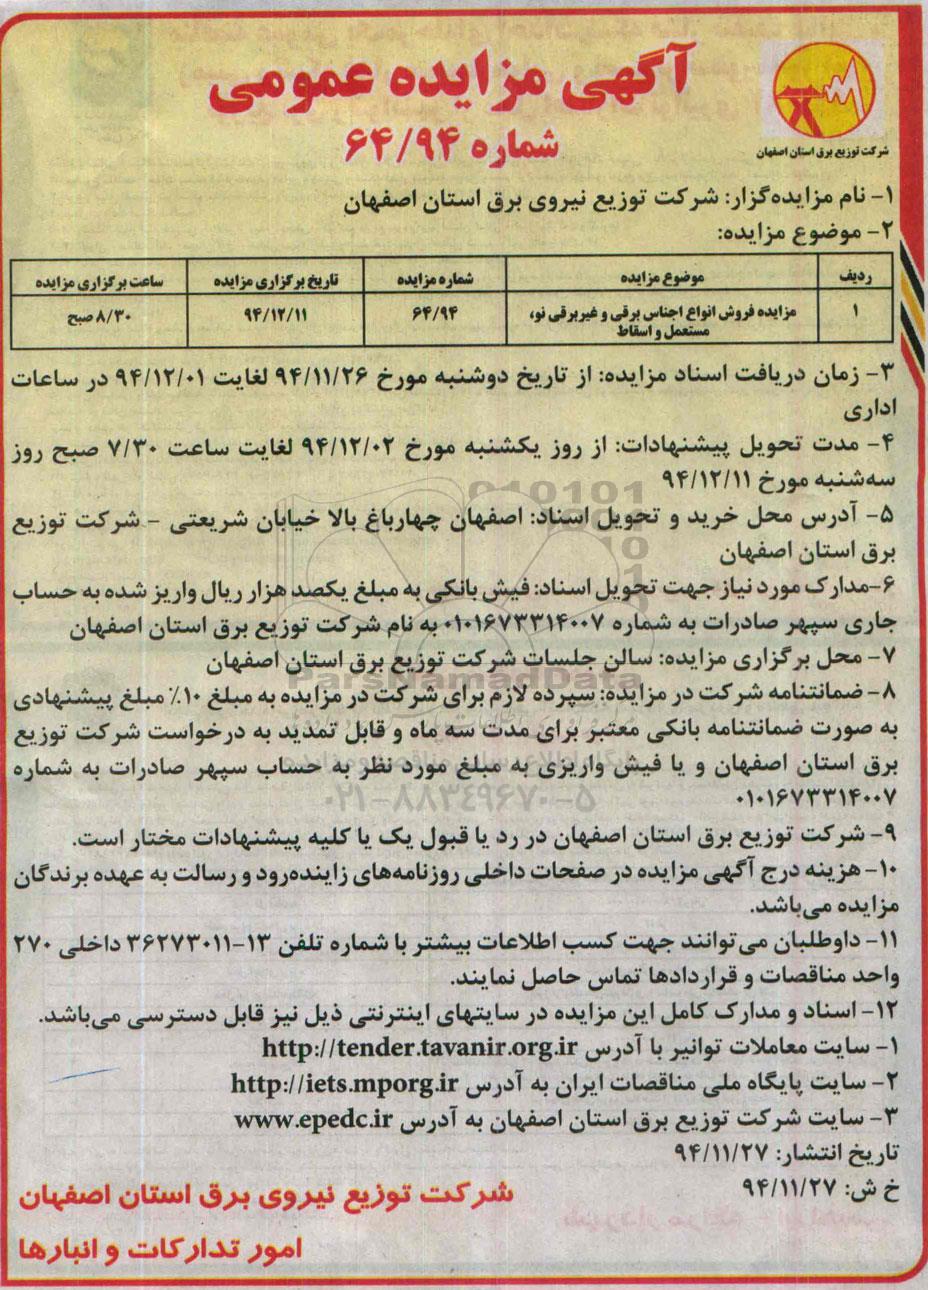 آگهی مزایده عمومی
شماره ۶۴/۹۴
شرکت توزیع برق استان اصفهان
۱- نام مزایده‌گزار: شرکت توزیع نیروی برق استان اصفهان
۲- موضوع مزایده:
ردیف موضوع مزایده شماره مزایده تاریخ برگزاری مزایده ساعت برگزاری مزایده
۱ مزایده فروش انواع اجناس برقی و غیربرقی نو، ۶۴/۹۴ ۹۴/۱۲/۱۱ ۸/۳۰ صبح
مستعمل و اسقاط
۳- زمان دریافت اسناد مزایده: از تاریخ دوشنبه مورخ ۹۴/۱۱/۲۶ لغایت ۹۴/۱۲/۰۱ در ساعات
اداری
۴- مدت تحویل پیشنهادات: از روز یکشنبه مورخ ۹۴/۱۲/۰۲ لغایت ساعت ۷/۳۰ صبح روز
سه‌شنبه مورخ ۹۴/۱۲/۱۱
۵- آدرس محل خرید و تحویل اسناد: اصفهان چهارباغ بالا خیابان شریعتی - شرکت توزیع
برق استان اصفهان
۶-مدارک مورد نیاز جهت تحویل اسناد: فیش بانکی به مبلغ یکصد هزار ریال واریز شده به حساب
جاری سپهر صادرات به شماره ۰۱۰۱۶۷۳۳۱۴۰۰۷ به نام شرکت توزیع برق استان اصفهان
۷- محل برگزاری مزایده: سالن جلسات شرکت توزیع برق استان اصفهان
ParsNamadData
۸- ضمانتنامه شرکت در مزایده: سپرده لازم برای شرکت در مزایده به مبلغ ۱۰٪ مبلغ پیشنهادی
به صورت ضمانتنامه بانکی معتبر برای مدت سه ماه و قابل تمدید به درخواست شرکت توزیع
برق استان اصفهان و یا فیش واریزی به مبلغ مورد نظر به حساب سپهر صادرات به شماره
۰۱۰۱۶۷۳۳۱۴۰۰۷
۰۲۱-۸۸۳۴۹۶۷۰-۵
۹- شرکت توزیع برق استان اصفهان در رد یا قبول یک یا کلیه پیشنهادات مختار است.
۱۰- هزینه درج آگهی مزایده در صفحات داخلی روزنامه‌های زاینده‌رود و رسالت به عهده برندگان
مزایده می‌باشد.
۱۱- داوطلبان می‌توانند جهت کسب اطلاعات بیشتر با شماره تلفن ۱۳-۳۶۲۷۳۰۱۱ داخلی ۲۷۰
واحد مناقصات و قراردادها تماس حاصل نمایند.
۱۲- اسناد و مدارک کامل این مزایده در سایتهای اینترنتی ذیل نیز قابل دسترسی می‌باشد.
۱- سایت معاملات توانیر با آدرس http://tender.tavanir.org.ir
۲- سایت پایگاه ملی مناقصات ایران به آدرس http://iets.mporg.ir
۳- سایت شرکت توزیع برق استان اصفهان به آدرس www.epedc.ir
تاریخ انتشار: ۹۴/۱۱/۲۷
خ ش: ۹۴/۱۱/۲۷
شرکت توزیع نیروی برق استان اصفهان
امور تدارکات و انبارها